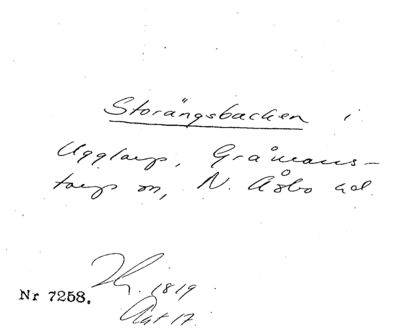 Storängsbacken i
Ugglarp, Gråmans-
torps sn, N. Åsbo hd.
1819
Nr 7258.
Akt 17